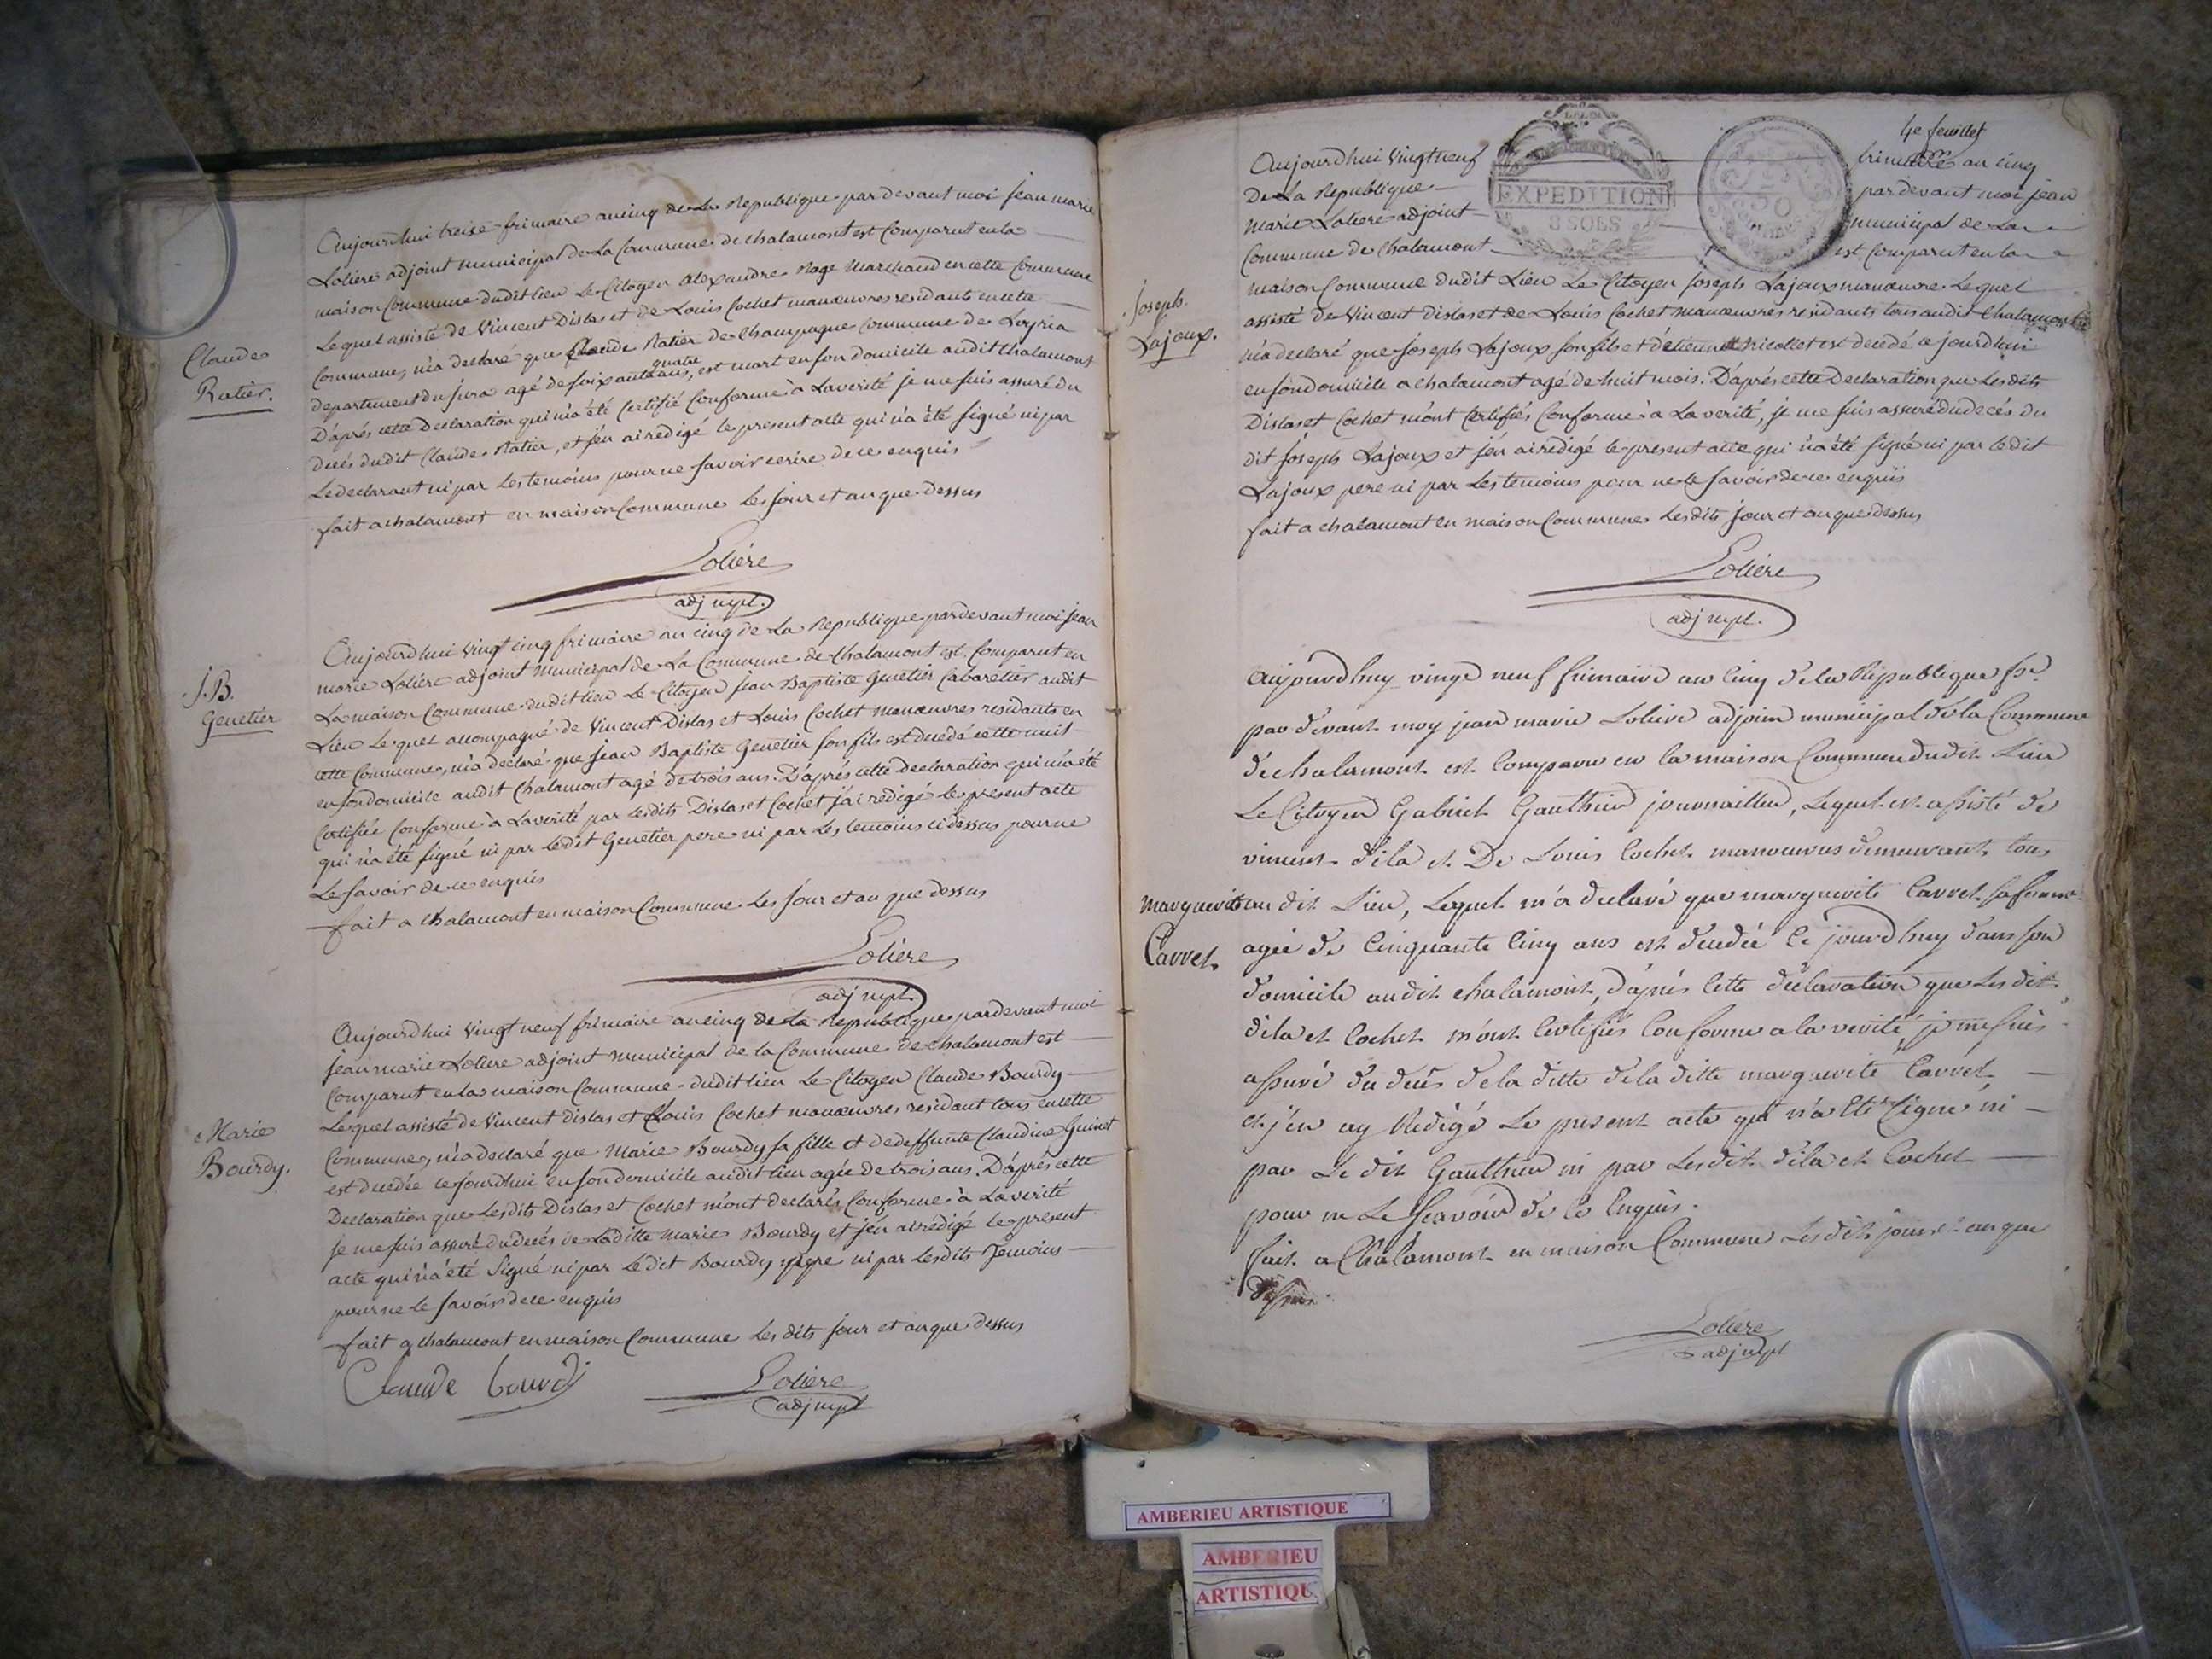 Claude
Ratier.
Aujourdhui treize frimaire an cinq de la Republique pardevant moi jean marie
Loliere adjoint municipal de La Commune de chalamont est Comparut en la
maison Commune dudit lieu Le Citoyen alexandre Rage Marchand en cette Commune
Lequel assisté de Vincent Dislas et de Louis Cochet manœuvres residants en cette
Commune, m'a declaré que Claude Ratier de Champagne Commune de Loyria
departement du jura agé de soixante quatre ans, est mort en son domicile audit Chalamont
D'aprés cette Declaration qui m'a été Certifié Conforme à La verité je me suis assuré du
decés dudit Claude Ratier, et j'en ai redigé le present acte qui n'a été signé ni par
Le declarant ni par Les temoins pour ne savoir ecrire de ce enquis
fait a chalamont en maison Commune Les jour et an que dessus
Loliere
adj mpl.
J.B.
Genetier
Aujourdhui vingt cinq frimaire an cinq de La Republique pardevant moi jean
marie Loliere adjoint Municipal de La Commune de Chalamont est Comparut en
La maison Commune dudit lieu Le Citoyen jean Baptiste Genetier Cabaretier audit
Lieu Lequel accompagné de Vincent Dislas et Louis Cochet manœuvres residants en
cette Commune, m'a declaré que jean Baptiste Genetier son fils est decedé cette nuit
en son domicile audit Chalamont agé de trois ans. D'aprés cette declaration qui m'a été
Certifiée Conforme à La verité par Lesdits Dislas et Cochet j'ai redigé le present acte
qui n'a été signé ni par Ledit Genetier pere ni par Les temoins ci dessus pour ne
Le savoir de ce enquis
fait a Chalamont en maison Commune Les jour et an que dessus
Loliere
adj mpl.
Marie
Bourdy.
Aujourdhui Vingt neuf frimaire an cinq de La Republique pardevant moi
jean marie Loliere adjoint Municipal de la Commune de Chalamont est
Comparut en la maison Commune dudit lieu Le Citoyen Claude Bourdy
Lequel assisté de Vincent dislas et Louis Cochet manœuvres residant tous en cette
Commune, m'a declaré que Marie Bourdy sa fille et de deffunte Claudine Guinet
est decedée ce jourdhui en son domicile audit lieu agée de trois ans. D'aprés cette
Declaration que Lesdits Dislas et Cochet m'ont declarés Conforme à La verité
je me suis assuré du decés de Laditte Marie Bourdy et j'en ai redigé le present
acte qui n'a été Signé ni par Le dit Bourdy pere ni par Lesdits Temoins
pour ne le savoir de ce enquis
fait a chalamont en maison Commune Les dits jour et an que dessus
Claude bourdi
Loliere
adj mpl
4e feuillet
EXPEDITION
3 SOLS
Joseph
Lajoux.
Aujourdhui Vingt neuf frimaire an cinq
De La Republique pardevant moi jean
Marie Loliere adjoint municipal de La
Commune de Chalamont est Comparut en la
maison Commune dudit Lieu Le Citoyen joseph Lajoux manœuvre Lequel
assisté de Vincent dislas et de Louis Cochet manœuvres residants tous audit Chalamont
m'a declaré que joseph Lajoux son fils et d'etiennette nicollet est decedé ce jourdhui
en son domicile a chalamont agé de huit mois. D'aprés cette Declaration que Les dits
Dislas et Cochet m'ont Certifiés Conforme à La verité, je me suis assuré du decés du
dit joseph Lajoux et j'en ai redigé le present acte qui n'a été signé ni par ledit
Lajoux pere ni par Les temoins pour ne le savoir de ce enquis
fait a chalamont en maison Commune Lesdits jour et an que dessus
Loliere
adj mpl.
marguerite
Carret
aujourdhuy vingt neuf frimaire an cinq de la République fse
par devant moy jean marie Loliere adjoint municipal de la Commune
de chalamont est Comparu en la maison Commune dudit Lieu
Le Citoyen Gabriel Gauthier journaillier, Lequel est assisté de
vincent dila et De Louis Cochet manoeuvres demeurants tous
au dit Lieu, Lequel m'a declaré que marguerite Carret sa femme
agée de Cinquante Cinq ans est decedée Ce jourdhuy dans son
domicile audit chalamont, d'aprés Cette declaration que Les dit
dila et Cochet m'ont Certifiés Conforme a la verité, je me suis
assuré du decés de la ditte de la ditte marguerite Carret
et j'en ay Redigé Le present acte qui n'a Eté Signé ni
par Le dit Gauthier ni par Lesdit dila et Cochet
pour ne Le Scavoir de Ce Enquis.
fait a Chalamont en maison Commune Lesdit jour et an que
dessus
Loliere
adj mpl
AMBERIEU ARTISTIQUE
AMBERIEU
ARTISTIQU